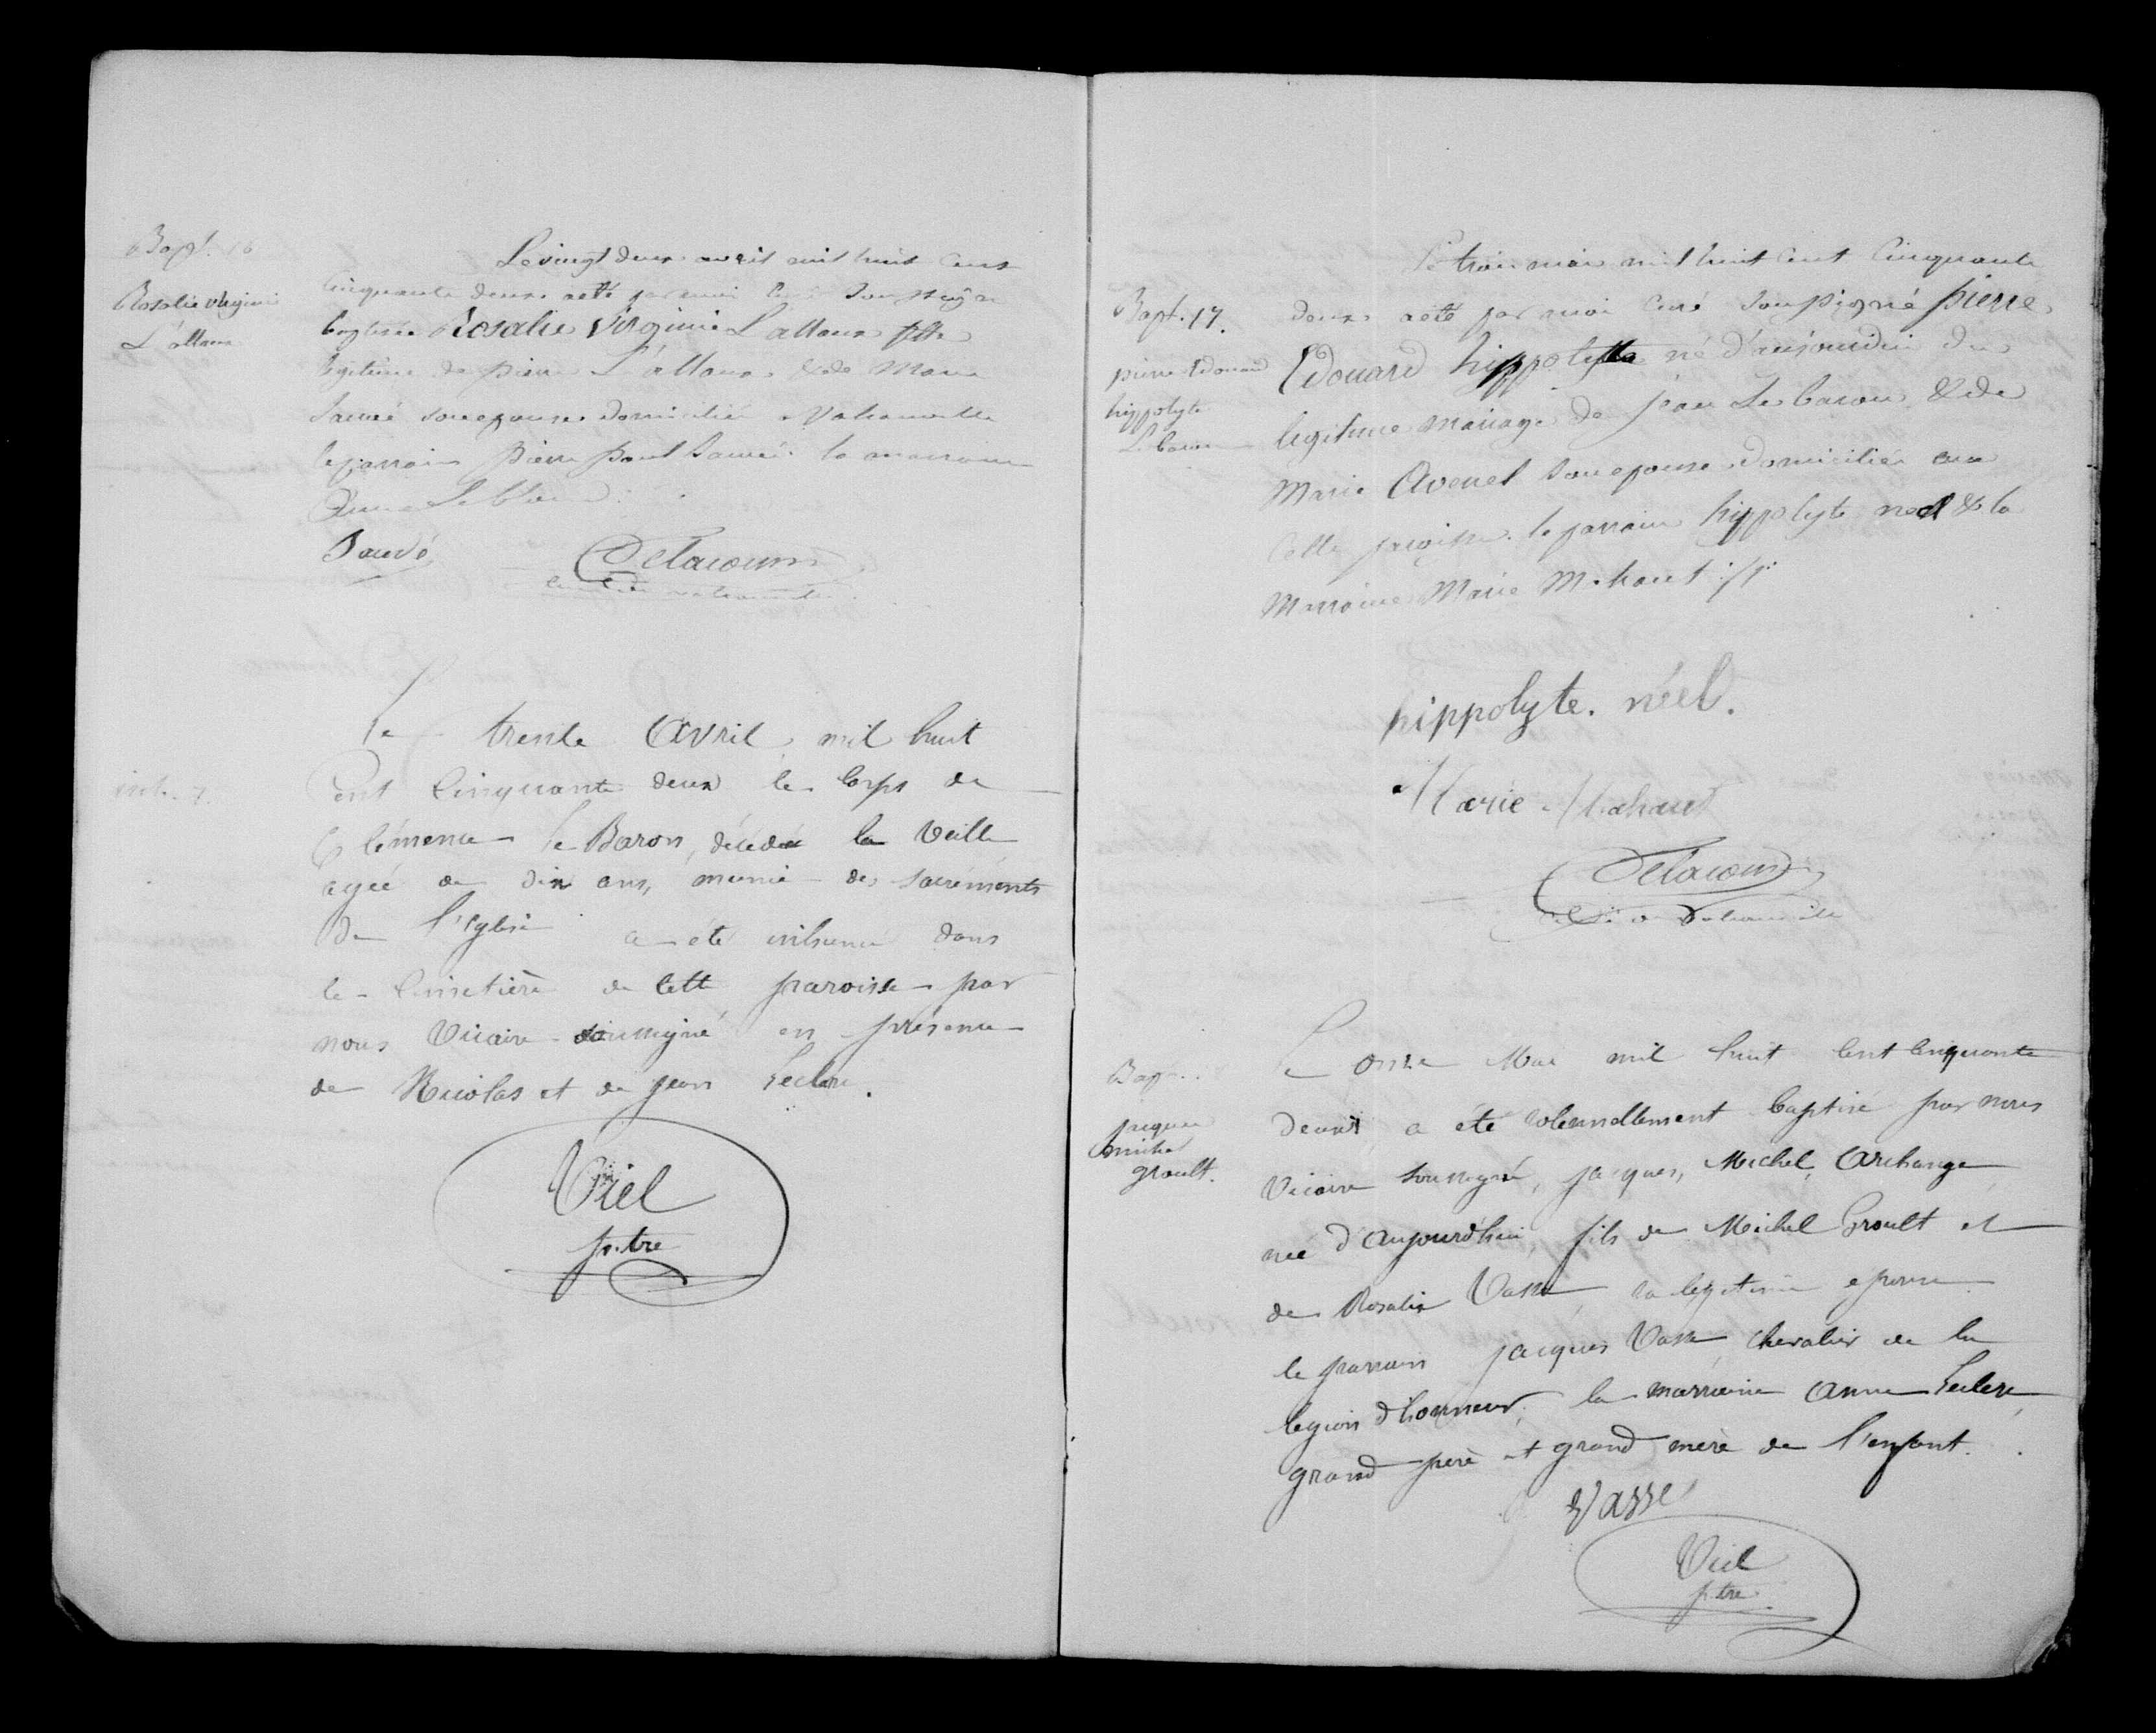 Bapt. 16
Rosalie virginie
L'allour
Le vingt deux avril mil huit cent
cinquante deux a été par moi curé soussigné
baptisée Rosalie Virginie Lallour fille
légitime de pierre L'allour & de Marie
Sauvé son epouse domiciliés a
le parrain pierre paul Sauvé la marraine
Sauvé
Delacour
curé de
inh. 7.
Le trente Avril mil huit
Cent Cinquante deux le Corps de
Clémence Le Baron, décédée la veille
agée de dix ans, munie des sacrements
De l'Eglise a été inhumé dans
le Cimetière de cette paroisse par
nous Vicaire soussigné en présence
de Nicolas et de jean Leclerc.
Viel
ptre
Le trois mai mil huit cent Cinquante
Bapt. 17.
pierre Edouard
hippolyte
Le baron
deux a été par moi curé soussigné pierre
Edouard hippolyte né d'aujourdui du
legitime mariage de jean Le baron & de
Marie Avenel son epouse domiciliés en
cette paroisse. le parrain hippolyte neel & la
Marraine Marie Mahaut
hippolyte. néel.
Marie Mahaut
Delacour
Bap
jacques
michel
groult.
Le onze Mai mil huit cent cinquante
deux a été solennellement baptisé par nous
Vicaire soussigné, jacques, Michel, Archange
née d'aujourd'hui, fils de Michel Groult et
de Rosalie Vasse, sa legitime epouse
le parrain jacques Vasse chevalier de la
legion d'honneur, la marraine Anne Leclerc
grand pere et grand mere de l'enfant.
Vasse
Viel
ptre